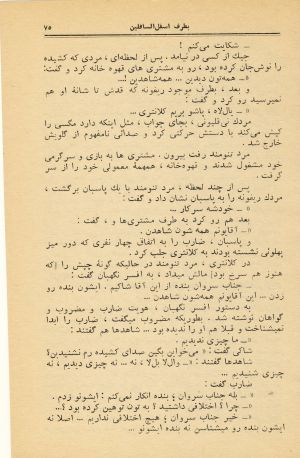 بطرف اسفل‌السافلین ۷۵
ــ شکایت می‌کنم !
جیك از کسی در نیامد . پس از لحظه‌ای ، مردی که کشیده
را نوش‌جان کرده بود ، رو به مشتری های قهوه خانه کرد و گفت:
« ــ همه‌تون دیدین ... همه‌شاهدین.
و بعد ، بطرف موجود ریغونه که قدش تا شانهٔ او هم
نمیرسید رو کرد و گفت :
« ــ یال‌لاه ، پاشو بریم کلانتری ...
مردك نی‌قلیونی ، بجای جواب ، مثل اینکه دارد مگسی را
کیش می‌کند با دستش حرکتی کرد و صدائی نامفهوم از گلویش
خارج شد .
مرد تنومند رفت بیرون . مشتری ها به بازی و سرگرمی
خود مشغول شدند و قهوه‌خانه ، همهمهٔ معمولی خود را از سر
گرفت .
پس از چند لحظه ، مرد تنومند با یك پاسبان برگشت ،
مردك ریغونه را به پاسبان نشان داد و گفت :
« ــ خودشه سرکار ...
بعد هم رو کرد به طرف مشتری‌ها و ، گفت :
« ــ آقایونم همه شون شاهدن .
و پاسبان ، ضارب را به اتفاق چهار نفری که دور میز
پهلوئی نشسته بودند به کلانتری جلب کرد .
در کلانتری ، مرد تنومند در حالیکه گونهٔ چپش را [که
هنوز هم سرخ بود] مالش میداد ، به افسر نگهبان گفت :
ــ جناب سروان بنده از این آقا شاکیم . ایشون بنده رو
زدن ... این آقایونم همه‌شون شاهدن .
به دستور افسر نگهبان ، هویت ضارب و مضروب و
گواهان نوشته شد . بطوریکه مضروب میگفت ، ضارب را ابداً
نمیشناخت و قبلا هم او را ندیده بود ... شاهدها هم گفتند :
« ــ ما چیزی ندیدیم .
شاکی گفت : « ــ می‌خواین بگین صدای کشیده رم نشنیدین؟
شاهدها گفتند : « ــ والا بالا ، نه ... نه چیزی دیدیم ، نه
چیزی شنیدیم ...
ضارب گفت :
« ــ بله جناب سروان ؛ بنده انکار نمی‌کنم : ایشونو زدم .
« ــ چرا ؟ اختلافی داشتید ؟ به تون توهین کرده بود ؟..
« ــ خیر جناب سروان ؛ هیچ اختلافی نداریم ... اصلا نه
ایشون بنده رو میشناسن نه بنده ایشونو ...